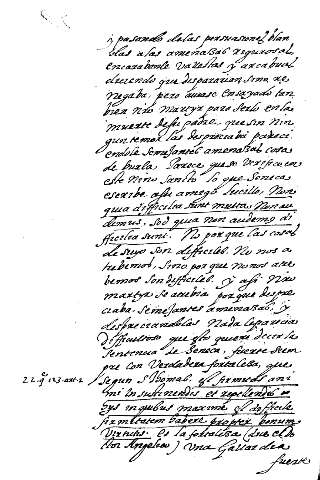 y pasando de las persuasiones blan
das a las amenazas rigurosas,
encarabanle ballestas y arcabuces
diciendo que dispararian sino re
negaba. pero auiase ensayado tan
bien niño Martyr para serlo en la
muerte de su padre, que sin nin
gun temor las despreciaba pareci
endole semejantes amenazas cosa
de burla. Parece que se verifica en
este Niño Santo lo que Seneca
escribe a su amigo Lucilo. Non
quia difficilia sunt multa. Non au
demus, sed quia non audemus di
fficilia sunt. No porque las cosas
de suyo son difficiles. No nos a
trebemos, sino porque no nos atre
bemos son difficiles. y asi Niño
martyr se atrebia porque despre
ciaba semejantes amenazas, y
despreciandolas Nada le parecia
difficultoso que esso quiere decir la
sentencia de Seneca. fuerte siem
pre con Verdadera fortaleza, que
segun S. Thomas. est firmitas ani
mi in sustinendis et repellendis
iys in quibus maxime est difficile
firmitatem habere propter bonum
Virtutis. Es la fortaleza (dice el do
ctor Angelico) Una Gallarda
fuerte
2 2. q. 123. art. 2